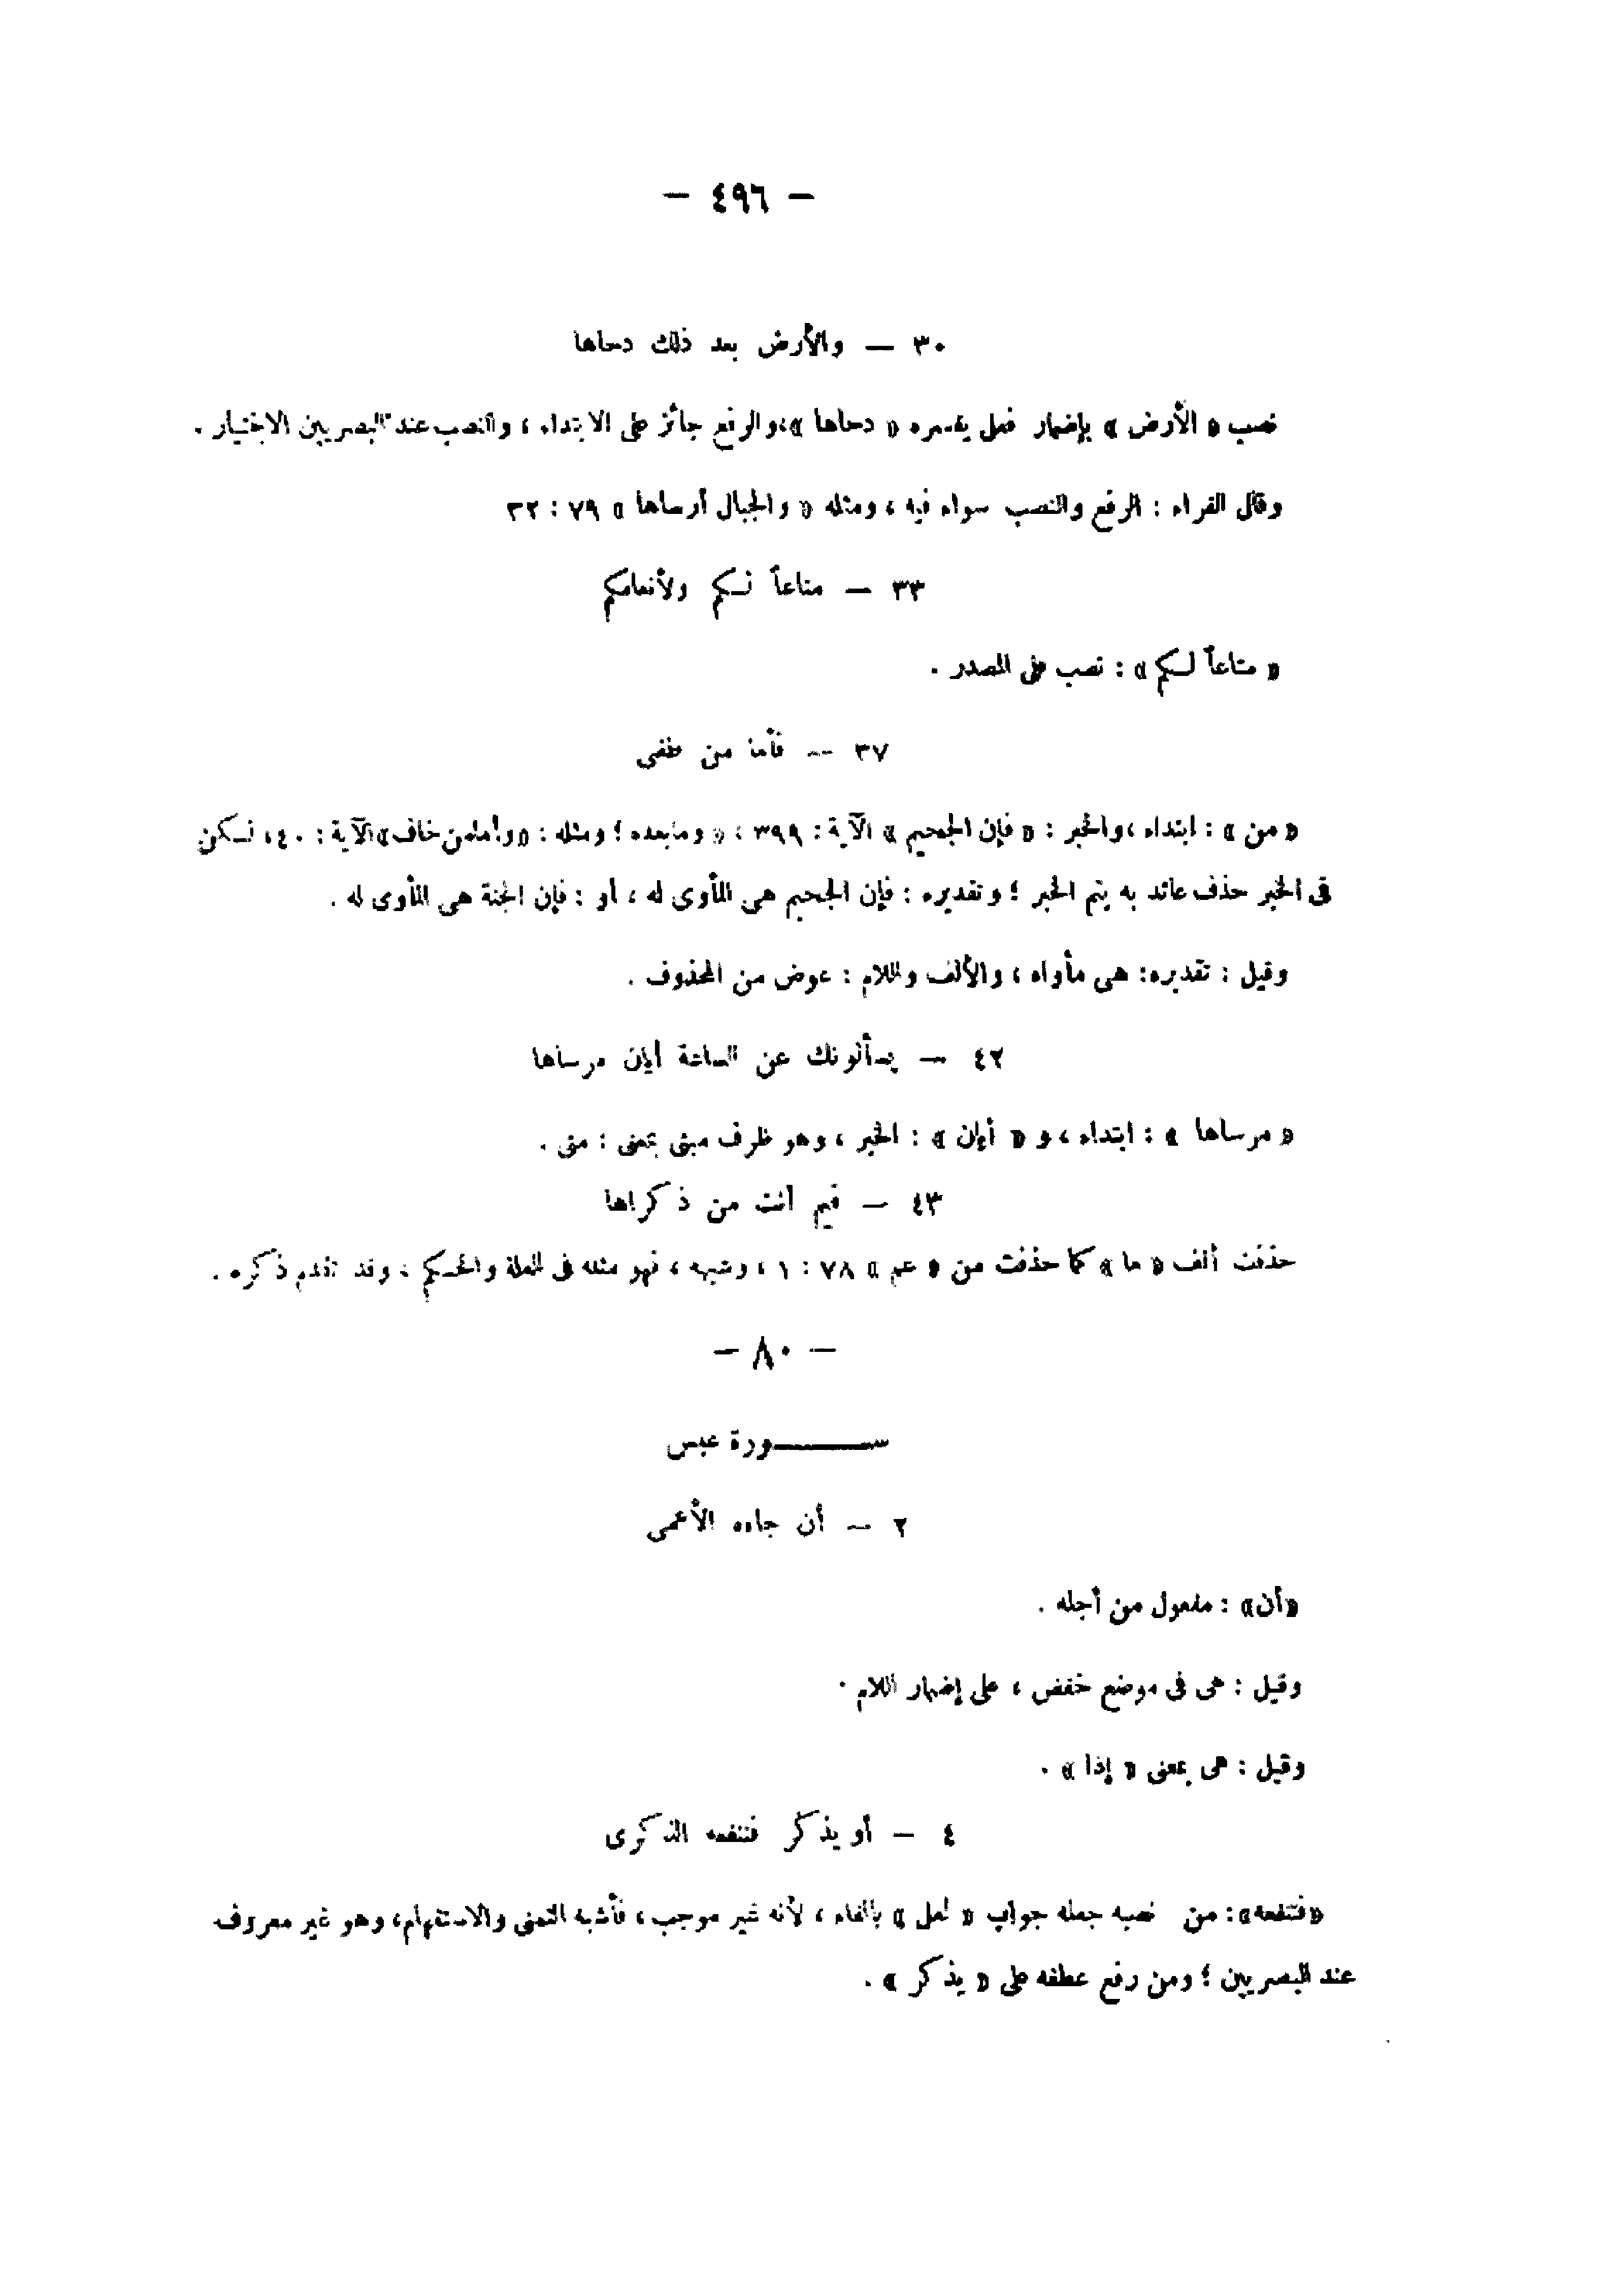 — ٤٩٦ —
٣٠ — والأرض بعد ذلك دحاها
نصب « الأرض » بإضمار فعل يفسره « دحاها »، والرفع جائز على الابتداء ، والنصب عند البصريين الاختيار .
وقال الفراء : الرفع والنصب سواء فيه ، ومثله « والجبال أرساها » ٧٩ : ٣٢
٣٣ — متاعاً لكم ولأنعامكم
« متاعاً لكم » : نصب على المصدر .
٣٧ — فأما من طغى
« من » : ابتداء ، والخبر : « فإن الجحيم » الآية : ٣٩٩ ، « ومابعده ؛ ومثله : « وأمامن خاف » الآية : ٤٠ ، لكن
فى الخبر حذف عائد به يتم الخبر ؛ وتقديره : فإن الجحيم هى المأوى له ، أو : فإن الجنة هى المأوى له .
وقيل : تقديره: هى مأواه ، والألف واللام : عوض من المحذوف .
٤٢ — يسألونك عن الساعة أيان مرساها
« مرساها » : ابتداء ، و « أيان » : الخبر ، وهو ظرف مبنى بمعنى : متى .
٤٣ — فيم أنت من ذكراها
حذفت ألف « ما » كما حذفت من « عم » ٧٨ : ١ ، وشبهه ، فهو مثله فى العلة والحكم ، وقد تقدم ذكره .
— ٨٠ —
ســـــورة عبس
٢ — أن جاءه الأعمى
«أن» : مفعول من أجله .
وقيل : هى فى موضع خفض ، على إضمار اللام .
وقيل : هى بمعنى « إذا » .
٤ — أو يذكر فتنفعه الذكرى
«فتنفعه» : من نصبه جعله جواب « لعل » بالفاء ، لأنه غير موجب ، فأشبه التمنى والاستفهام، وهو غير معروف
عند البصريين ؛ ومن رفع عطفه على « يذكر » .